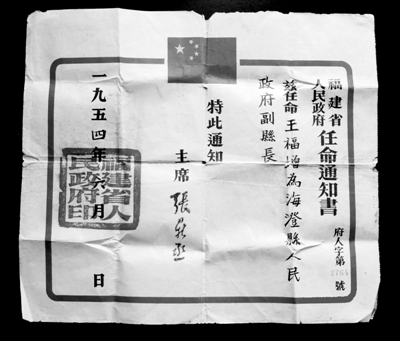 福建省
人民政府
任命通知書
府人字第
號
茲任命王福增為海澄縣人民
政府副縣長
特此通知
主席 張鼎丞
一九五四年六月 日
福建省人
民政府印